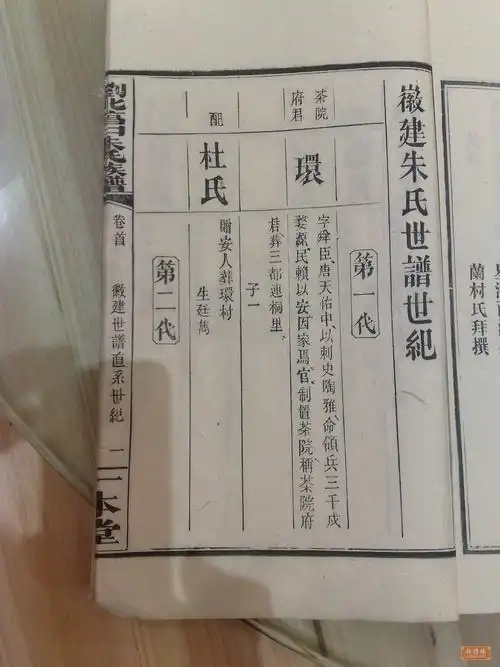 蘭村氏拜撰
徽建朱氏世譜世紀
第一代
茶院
府君
環
字舜臣、唐天佑中、以刺史陶雅、命領兵三千戍
婺源、民賴以安、因家焉、官、制置茶院、稱茶院府
君、葬三都連桐里、
子一
配
杜氏
贈安人葬環村
生廷雋
第二代
朱氏族譜
卷首
徽建世譜直系世紀
二
一本堂